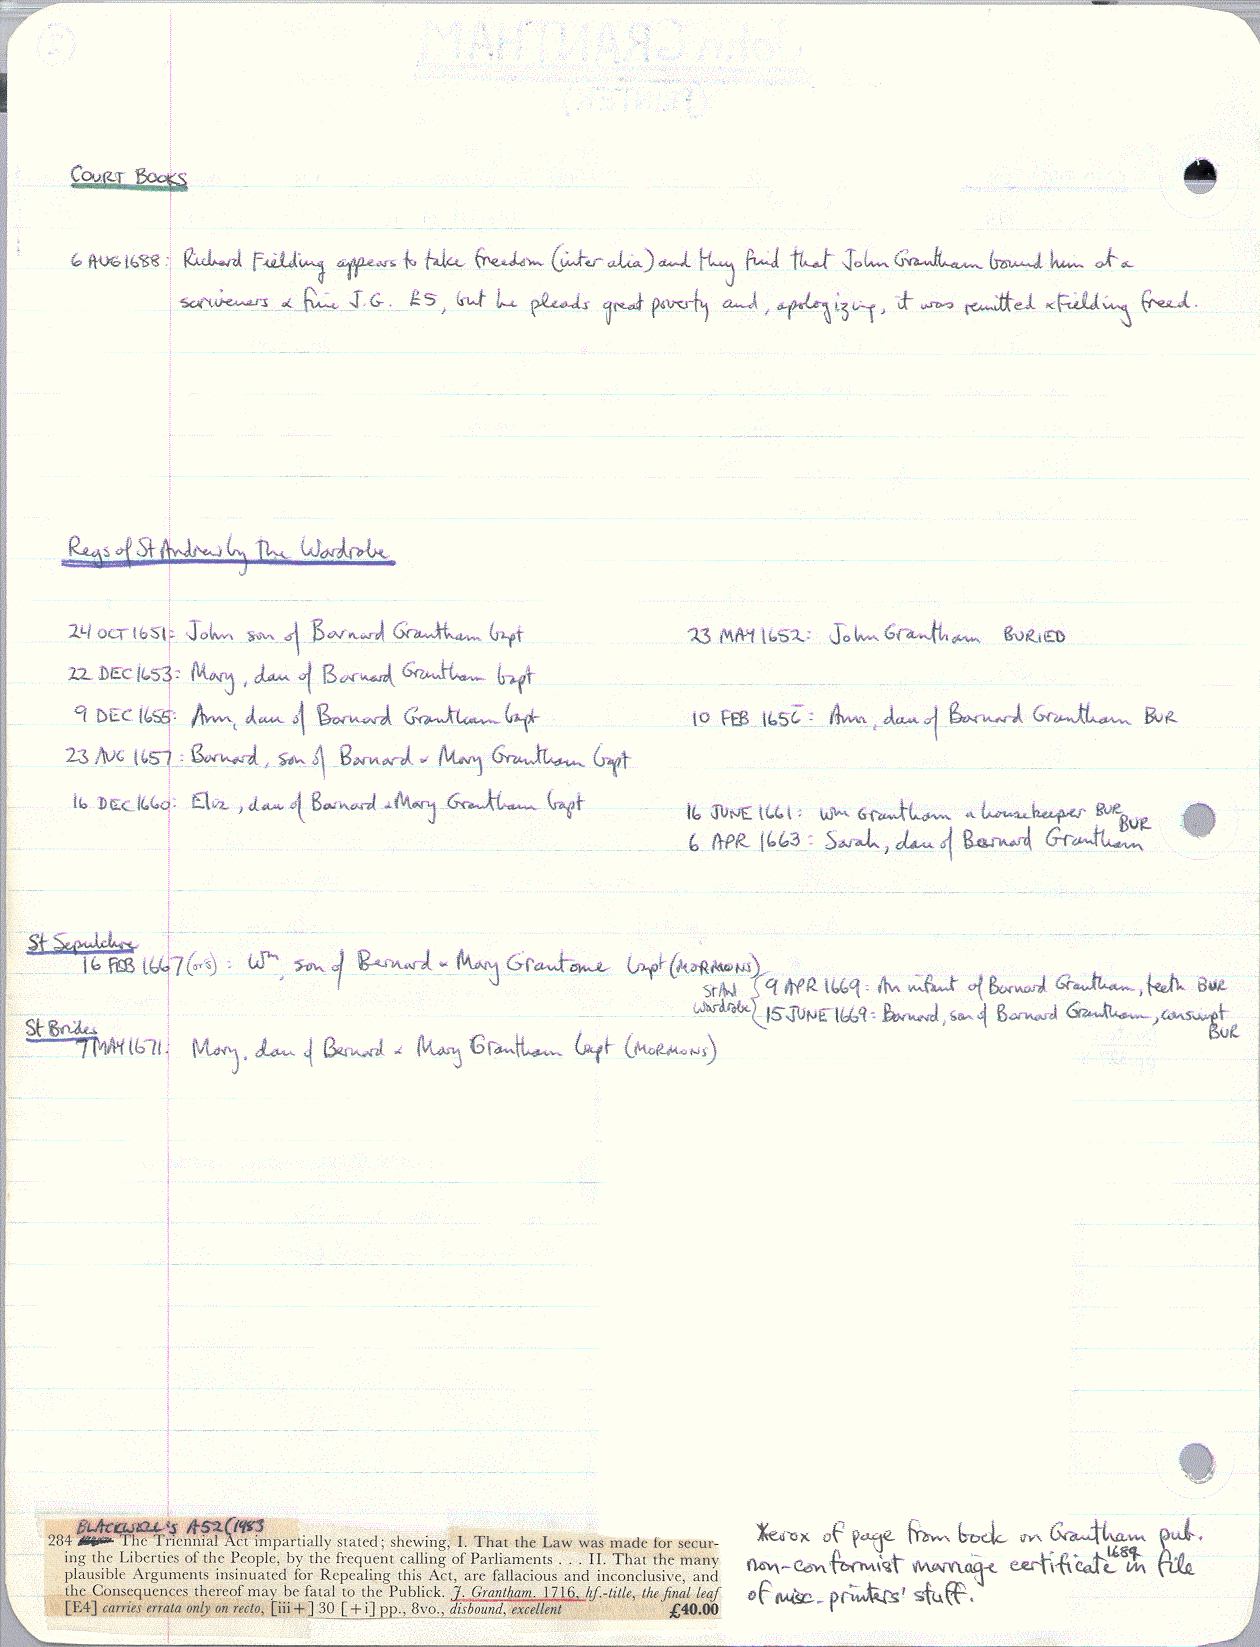 COURT BOOKS
6 AUG 1688: Richard Fielding appears to take freedom (inter alia) and they find that John Grantham bound him at a
scriveners & fine J.G. £5, but he pleads great poverty and, apologizing, it was remitted & Fielding freed.
Regs of St Andrew by The Wardrobe
24 OCT 1651: John son of Barnard Grantham bapt
23 MAY 1652: John Grantham BURIED
22 DEC 1653: Mary, dau of Barnard Grantham bapt
9 DEC 1655: Ann, dau of Barnard Grantham bapt
10 FEB 165: Ann, dau of Barnard Grantham BUR
23 AUG 1657: Barnard, son of Barnard & Mary Grantham bapt
16 DEC 1660: Eliz, dau of Barnard & Mary Grantham bapt
16 JUNE 1661: Wm Grantham a housekeeper BUR
6 APR 1663: Sarah, dau of Barnard Grantham BUR
St Sepulchre
16 FEB 1667 (or 8): Wm, son of Bernard & Mary Grantome bapt (MORMONS)
St And Wardrobe
9 APR 1669: An infant of Barnard Grantham, teeth BUR
15 JUNE 1669: Barnard, son of Barnard Grantham, consumpt BUR
St Brides
7 MAY 1671: Mary, dau of Bernard & Mary Grantham bapt (MORMONS)
BLACKWELL'S A52 (1983
284 The Triennial Act impartially stated; shewing, I. That the Law was made for secur-
ing the Liberties of the People, by the frequent calling of Parliaments . . . II. That the many
plausible Arguments insinuated for Repealing this Act, are fallacious and inconclusive, and
the Consequences thereof may be fatal to the Publick. J. Grantham, 1716, hf.-title, the final leaf
[E4] carries errata only on recto, [iii+] 30 [+i] pp., 8vo., disbound, excellent £40.00
Xerox of page from book on Grantham pub.
non-conformist marriage certificate 1689 in file
of misc. printers' stuff.